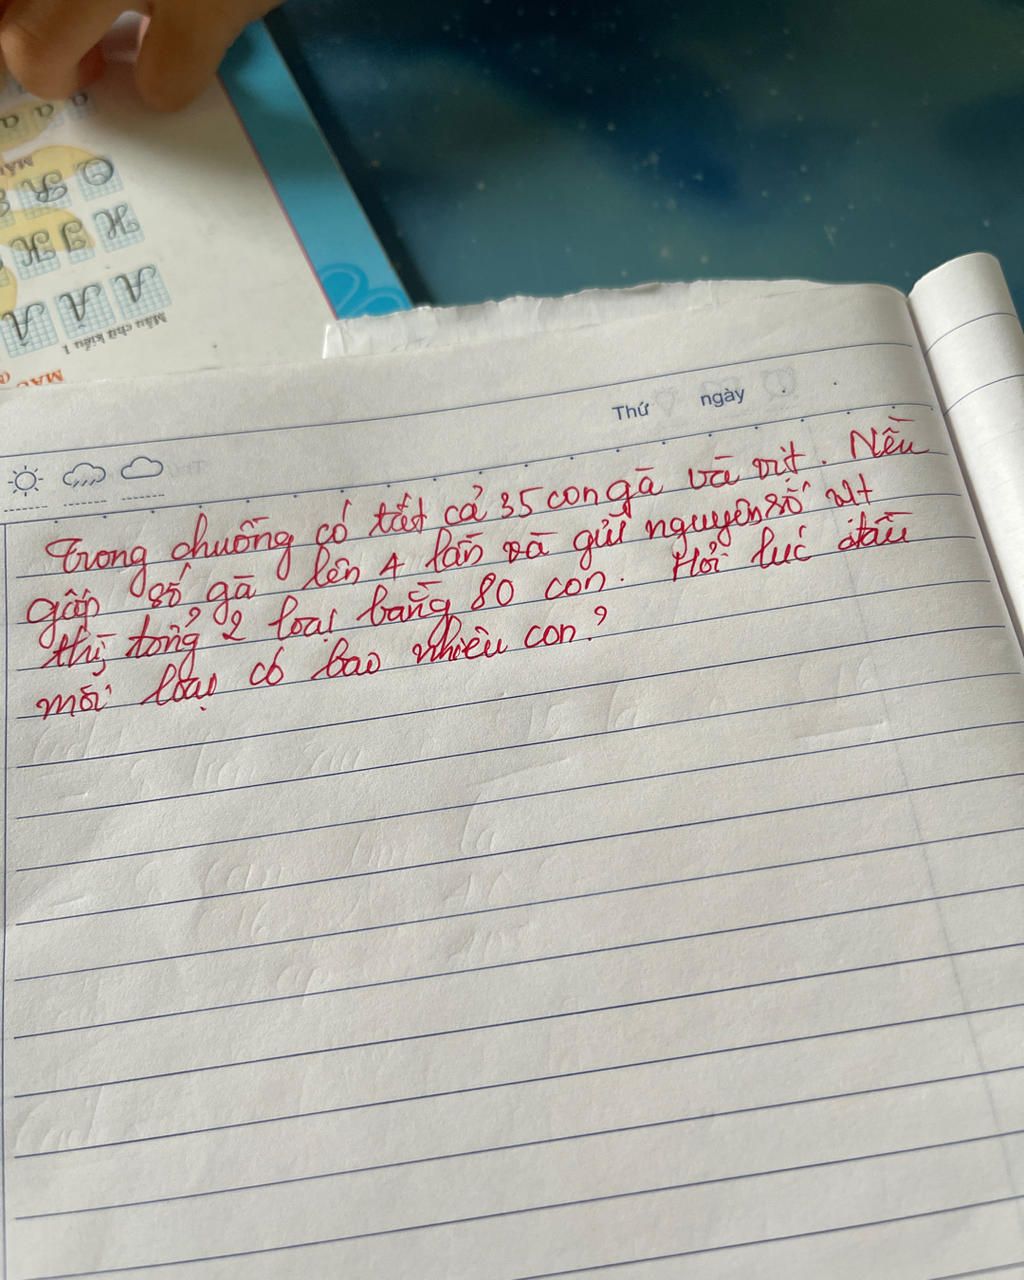 Mẫu chữ kiểu 1
Thứ ngày
Trong chuồng có tất cả 35 con gà và vịt. Nếu
gấp số gà lên 4 lần và giữ nguyên số vịt
thì tổng 2 loại bằng 80 con. Hỏi lúc đầu
mỗi loại có bao nhiêu con?